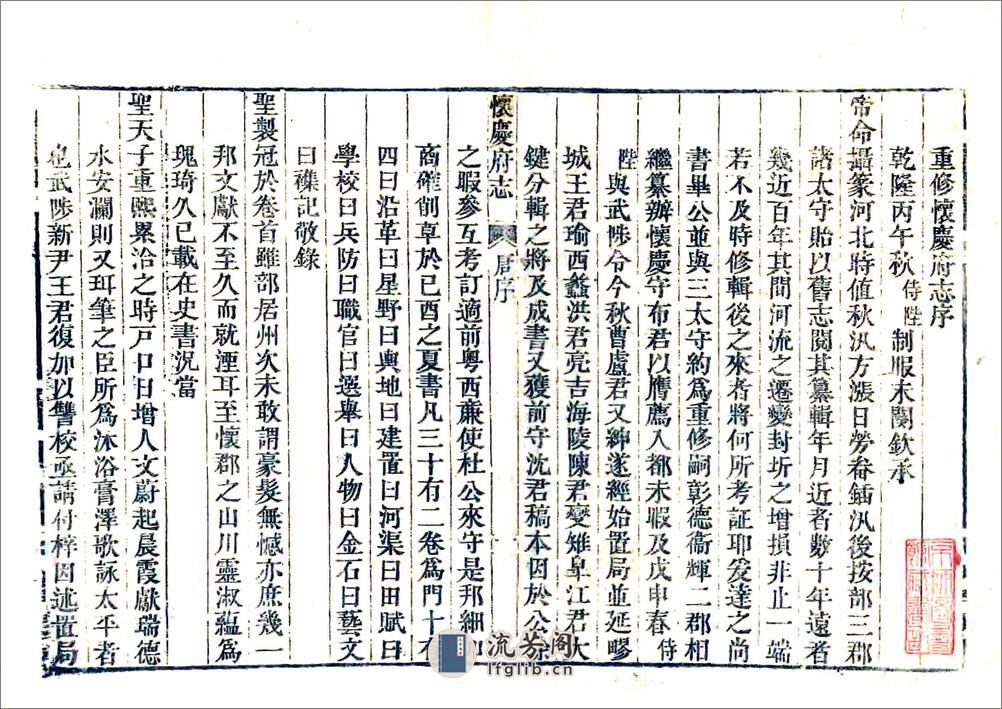 重修懷慶府志序
乾隆丙午秋侍陛制服未闋欽承
帝命攝篆河北時值秋汛方漲日勞畚鍤汛後按部三郡
諸太守貽以舊志閱其纂輯年月近者數十年遠者
幾近百年其間河流之遷變封圻之增損非止一端
若不及時修輯後之來者將何所考証耶爰達之尚
書畢公並與三太守約爲重修嗣彰德衞輝二郡相
繼纂辦懷慶守布君以膺薦入都未暇及戊申春侍
陛與武陟令今秋曹盧君又紳遂經始置局並延鄠
城王君瑜西蠡洪君亮吉海陵陳君燮雉皐江君大
鍵分輯之將及成書又獲前守沈君稿本因於公餘
懷慶府志
序
之暇參互考訂適前粤西廉使杜公來守是邦細加
商確削草於已酉之夏書凡三十有二卷爲門十有
四曰沿革曰星野曰輿地曰建置曰河渠曰田賦曰
學校曰兵防曰職官曰選舉曰人物曰金石曰藝文
曰襍記敬錄
聖製冠於卷首雖部居州次未敢謂豪髮無憾亦庶幾一
邦文獻不至久而就湮耳至懷郡之山川靈淑蘊爲
瑰琦久已載在史書況當
聖天子重熙累洽之時戸口日增人文蔚起晨霞獻瑞德
水安瀾則又珥筆之臣所爲沐浴膏澤歌詠太平者
也武陟新尹王君復加以讐校亟請付梓因述置局
流芳阁
lfglib.cn